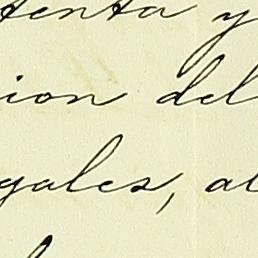 tenta y
ion del
gales, al